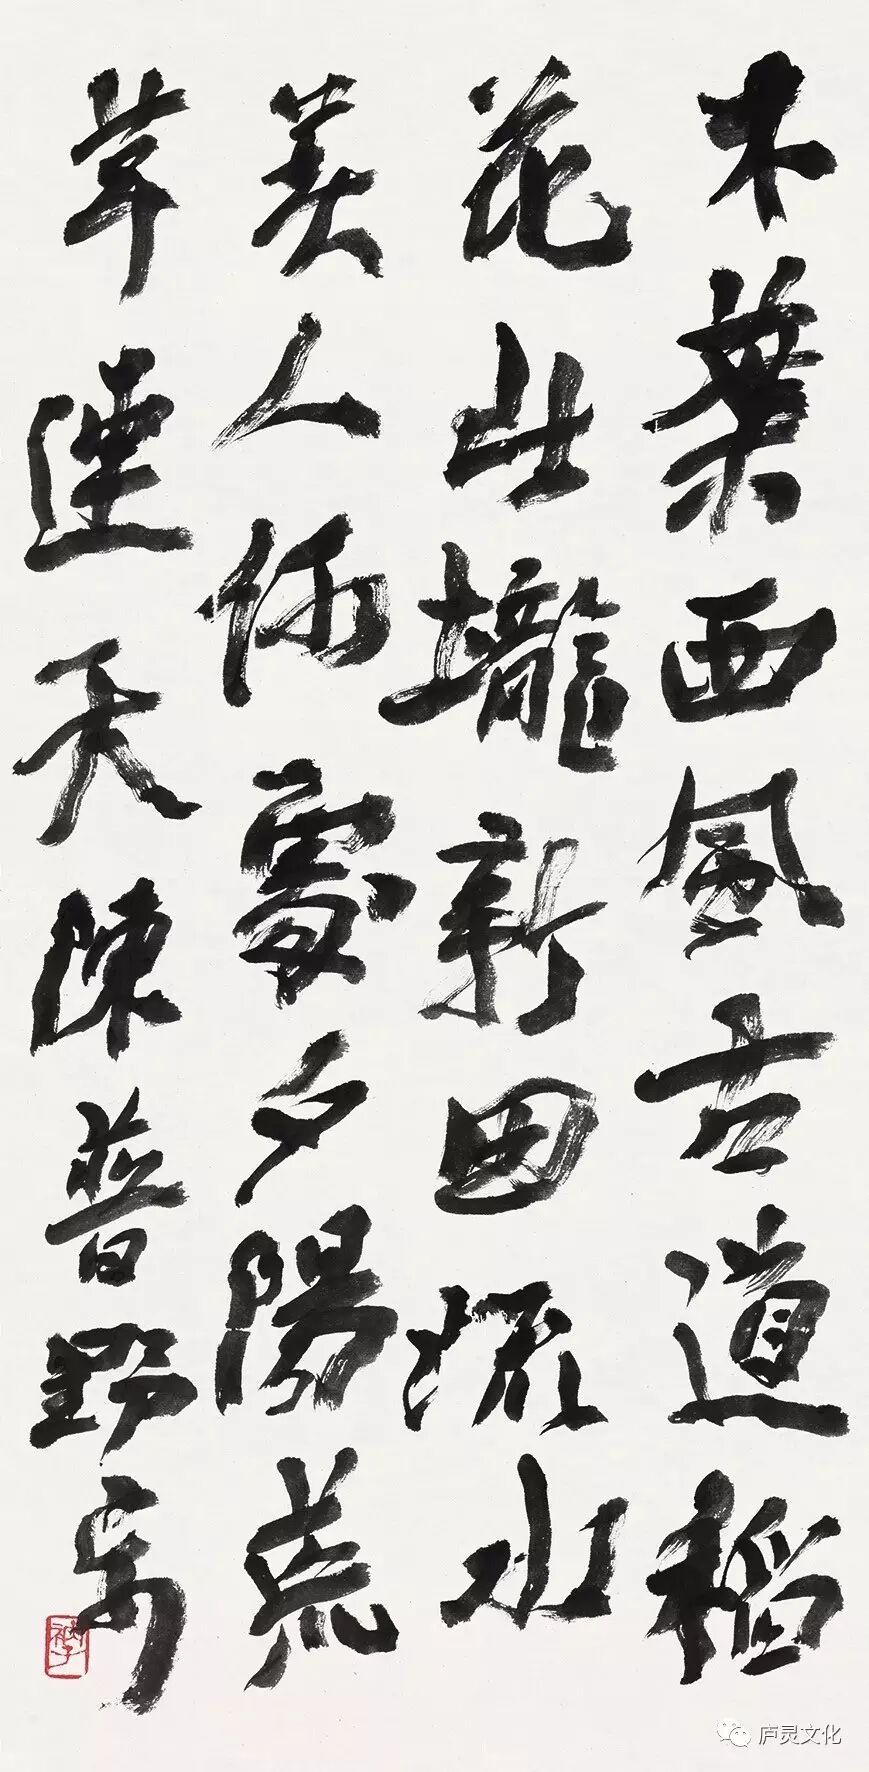 木葉西風古道稻
花北壠新田流水
美人何處夕陽荒
草連天陳普野步
庐灵文化